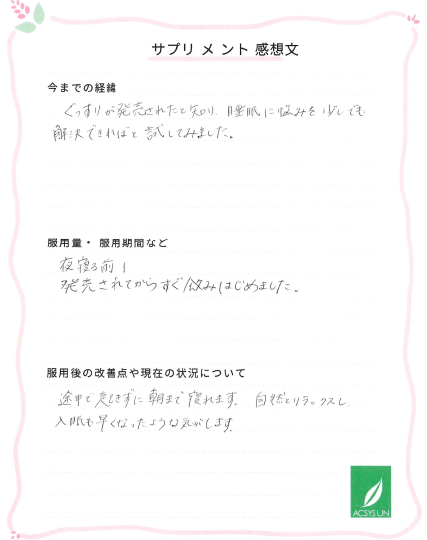 サプリメント感想文
今までの経緯
ぐっすりが発売されたと知り、睡眠に悩みを少しでも
解決できればと試してみました。
服用量・服用期間など
夜寝る前1
発売されてからすぐ飲みはじめました。
服用後の改善点や現在の状況について
途中で起きずに朝まで寝れます。自然とリラックスし
入眠も早くなったような気がします。
ACSYS LIN